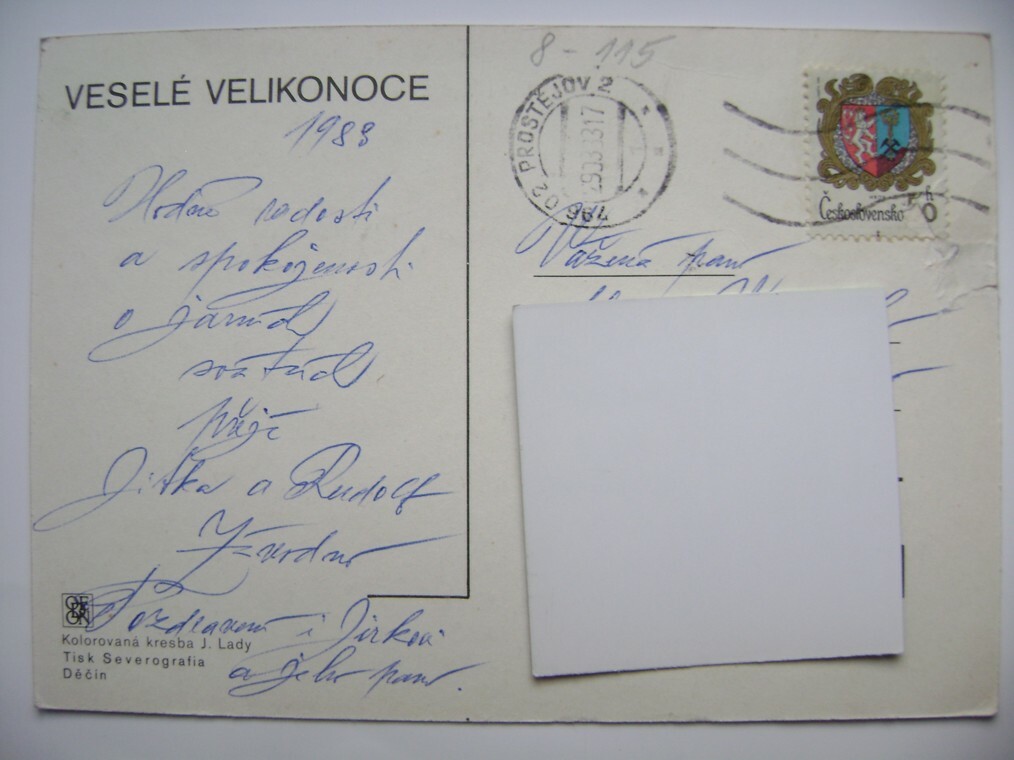 VESELÉ VELIKONOCE
1983
Hodně radosti
a spokojenosti
o jarních
svátcích
přejí
Jitka a Rudolf
Pozdravení i Jirkovi
a jeho paní.
Kolorovaná kresba J. Lady
Tisk Severografia
Děčín
8-115
PROSTĚJOV 2
964
Československo
h
Vážená paní